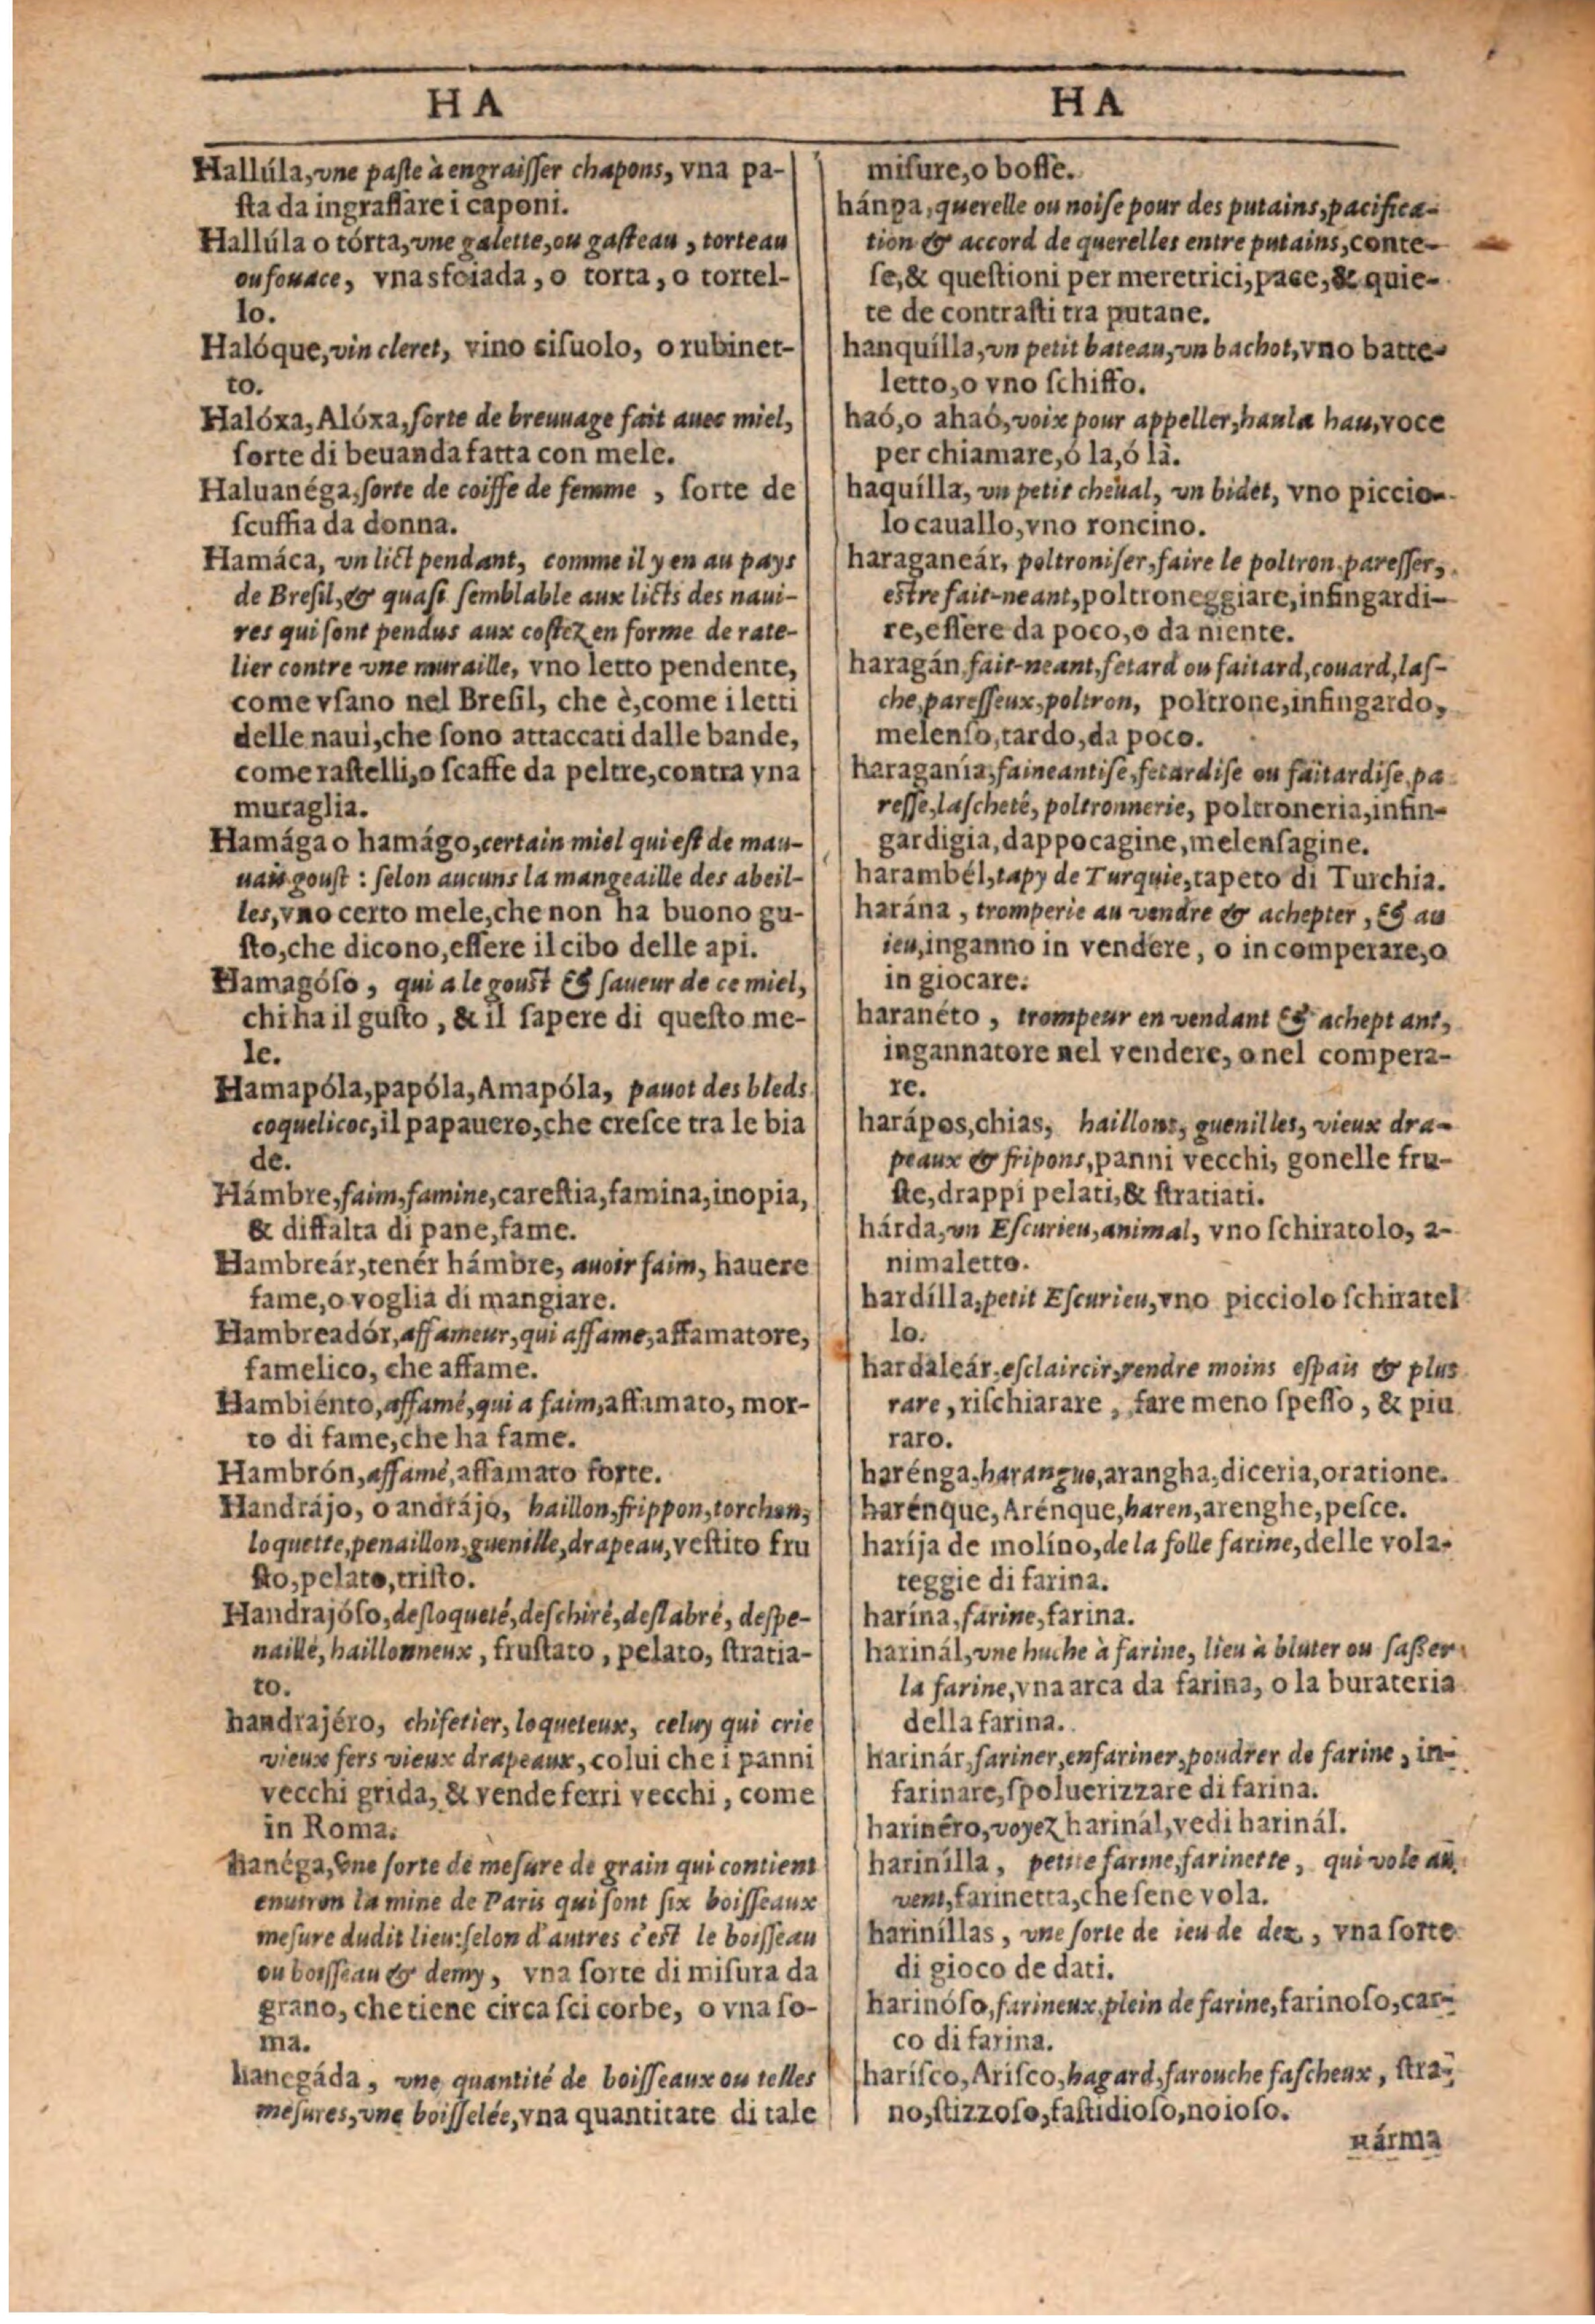 HA
Hallúla, vne paſte à engraiſſer chapons, vna pa-
ſta da ingraſſare i caponi.
Hallúla o tórta, vne galette, ou gaſteau, torteau
ou fouace, vna sfoiada, o torta, o tortel-
lo.
Halóque, vin cleret, vino cifuolo, o rubinet-
to.
Halóxa, Alóxa, ſorte de breuuage fait auec miel,
ſorte di beuanda fatta con mele.
Haluanéga, ſorte de coiffe de femme, ſorte de
ſcuffia da donna.
Hamáca, vn lict pendant, comme il y en au pays
de Breſil, & quaſi ſemblable aux licts des naui-
res qui ſont pendus aux coſtez en forme de rate-
lier contre vne muraille, vno letto pendente,
come vſano nel Breſil, che è, come i letti
delle naui, che ſono attaccati dalle bande,
come raſtelli, o ſcaffe da peltre, contra vna
muraglia.
Hamága o hamágo, certain miel qui eſt de mau-
uais gouſt : ſelon aucuns la mangeaille des abeil-
les, vno certo mele, che non ha buono gu-
ſto, che dicono, eſſere il cibo delle api.
Hamagóſo, qui a le gouſt & ſaueur de ce miel,
chi ha il guſto, & il ſapere di queſto me-
le.
Hamapóla, papóla, Amapóla, pauot des bleds
coquelicoc, il papauero, che creſce tra le bia
de.
Hámbre, faim, famine, careſtia, famina, inopia,
& diffalta di pane, fame.
Hambreár, tenér hámbre, auoir faim, hauere
fame, o voglia di mangiare.
Hambreadór, affameur, qui affame, affamatore,
famelico, che affame.
Hambiénto, affamé, qui a faim, affamato, mor-
to di fame, che ha fame.
Hambrón, affamé, affamato forte.
Handrájo, o andrájo, haillon, frippon, torchon,
loquette, penaillon, guenille, drapeau, veſtito fru
ſto, pelato, triſto.
Handrajóſo, deſloqueté, deſchiré, deſlabré, deſpe-
naillé, haillonneux, fruſtato, pelato, ſtratia-
to.
handrajéro, chifetier, loqueteux, celuy qui crie
vieux fers vieux drapeaux, colui che i panni
vecchi grida, & vende ferri vecchi, come
in Roma.
hanéga, vne ſorte de meſure de grain qui contient
enuiron la mine de Paris qui ſont ſix boiſſeaux
meſure dudit lieu: ſelon d'autres c'eſt le boiſſeau
ou boiſſeau & demy, vna ſorte di miſura da
grano, che tiene circa ſei corbe, o vna ſo-
ma.
hanegáda, vne quantité de boiſſeaux ou telles
meſures, vne boiſſelée, vna quantitate di tale
HA
miſure, o boſſe.
hánpa, querelle ou noiſe pour des putains, pacifica-
tion & accord de querelles entre putains, conte-
ſe, & queſtioni per meretrici, pace, & quie-
te de contraſti tra putane.
hanquílla, vn petit bateau, vn bachot, vno batte-
letto, o vno ſchiffo.
haó, o ahaó, voix pour appeller, haula hau, voce
per chiamare, ó la, ó là.
haquílla, vn petit cheual, vn bidet, vno piccio-
lo cauallo, vno roncino.
haraganeár, poltroniſer, faire le poltron, pareſſer,
eſtre fait-neant, poltroneggiare, infingardi-
re, eſſere da poco, o da niente.
haragán, fait-neant, fetard ou faitard, couard, laſ-
che, pareſſeux, poltron, poltrone, infingardo,
melenſo, tardo, da poco.
haraganía, faineantiſe, fetardiſe ou faitardiſe, pa
reſſe, laſcheté, poltronnerie, poltroneria, infin-
gardigia, dappocagine, melenſagine.
harambél, tapy de Turquie, tapeto di Turchia.
harána, tromperie au vendre & achepter, & au
ieu, inganno in vendere, o in comperare, o
in giocare.
haranéto, trompeur en vendant & acheptant,
ingannatore nel vendere, o nel compera-
re.
harápos, chias, haillons, guenilles, vieux dra-
peaux & fripons, panni vecchi, gonelle fru-
ſte, drappi pelati, & ſtratiati.
hárda, vn Eſcurieu, animal, vno ſchiratolo, a-
nimaletto.
hardílla, petit Eſcurieu, vno picciolo ſchiratel
lo.
hardaleár, eſclaircir, rendre moins eſpais & plus
rare, riſchiarare, fare meno ſpeſſo, & piu
raro.
harénga, harangue, arangha, diceria, oratione.
harénque, Arénque, haren, arenghe, peſce.
haríja de molíno, de la folle farine, delle vola-
teggie di farina.
harína, farine, farina.
harinál, vne huche à farine, lieu à bluter ou ſaſſer
la farine, vna arca da farina, o la burateria
della farina.
harinár, fariner, enfariner, poudrer de farine, in-
farinare, ſpoluerizzare di farina.
harinéro, voyez harinál, vedi harinál.
harinílla, petite farine, farinette, qui vole au
vent, farinetta, che ſene vola.
hariníllas, vne ſorte de ieu de dez, vna ſorte
di gioco de dati.
harinóſo, farineux, plein de farine, farinoſo, car-
co di farina.
haríſco, Ariſco, hagard, farouche faſcheux, ſtra-
no, ſtizzoſo, faſtidioſo, noioſo.
hárma